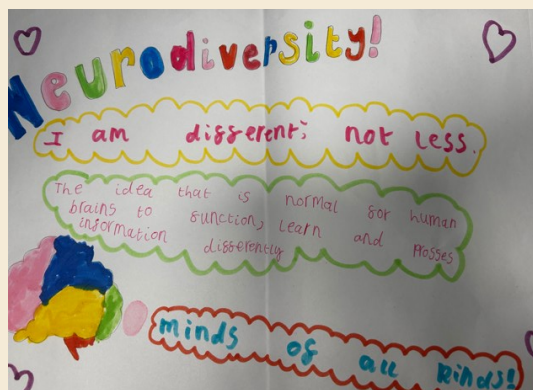 Neurodiversity!
I am different; not less.
The idea that is normal for human
brains to function, learn and prosses
information differently
minds of all kinds!